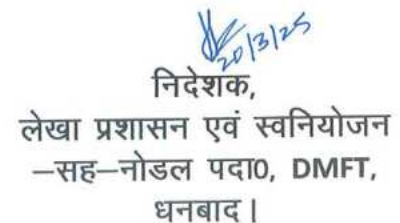 20/3/25
निदेशक,
लेखा प्रशासन एवं स्वनियोजन
–सह–नोडल पदा0, DMFT,
धनबाद।